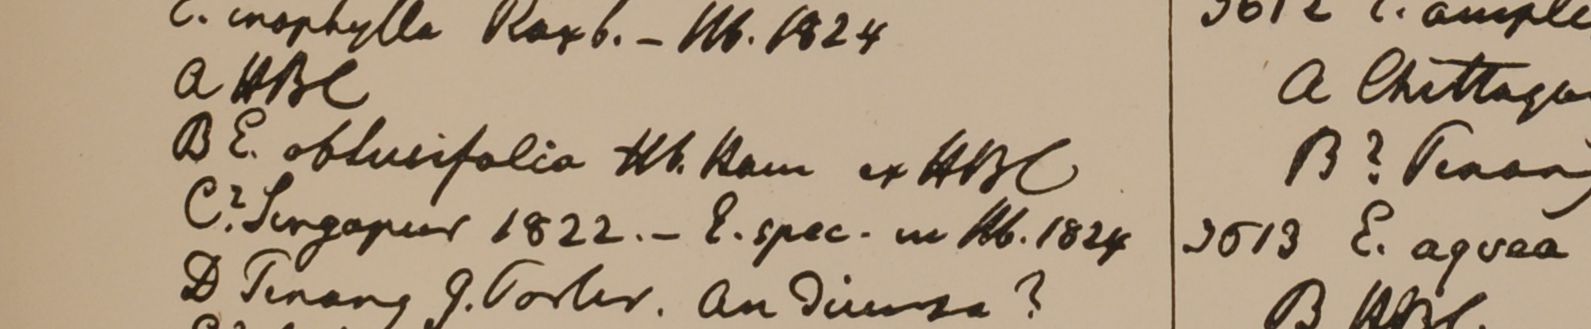 E. inophylla Roxb. – Hb. 1824
a HBC
B E. obtusifolia Hb. Ham ex HBC
C? Singapur 1822. – E. spec. in Hb. 1824
D Penang G. Porter. an diversa?
3612 E. ample
a Chittago
B? Penang
3613 E. aquea
B HBC.